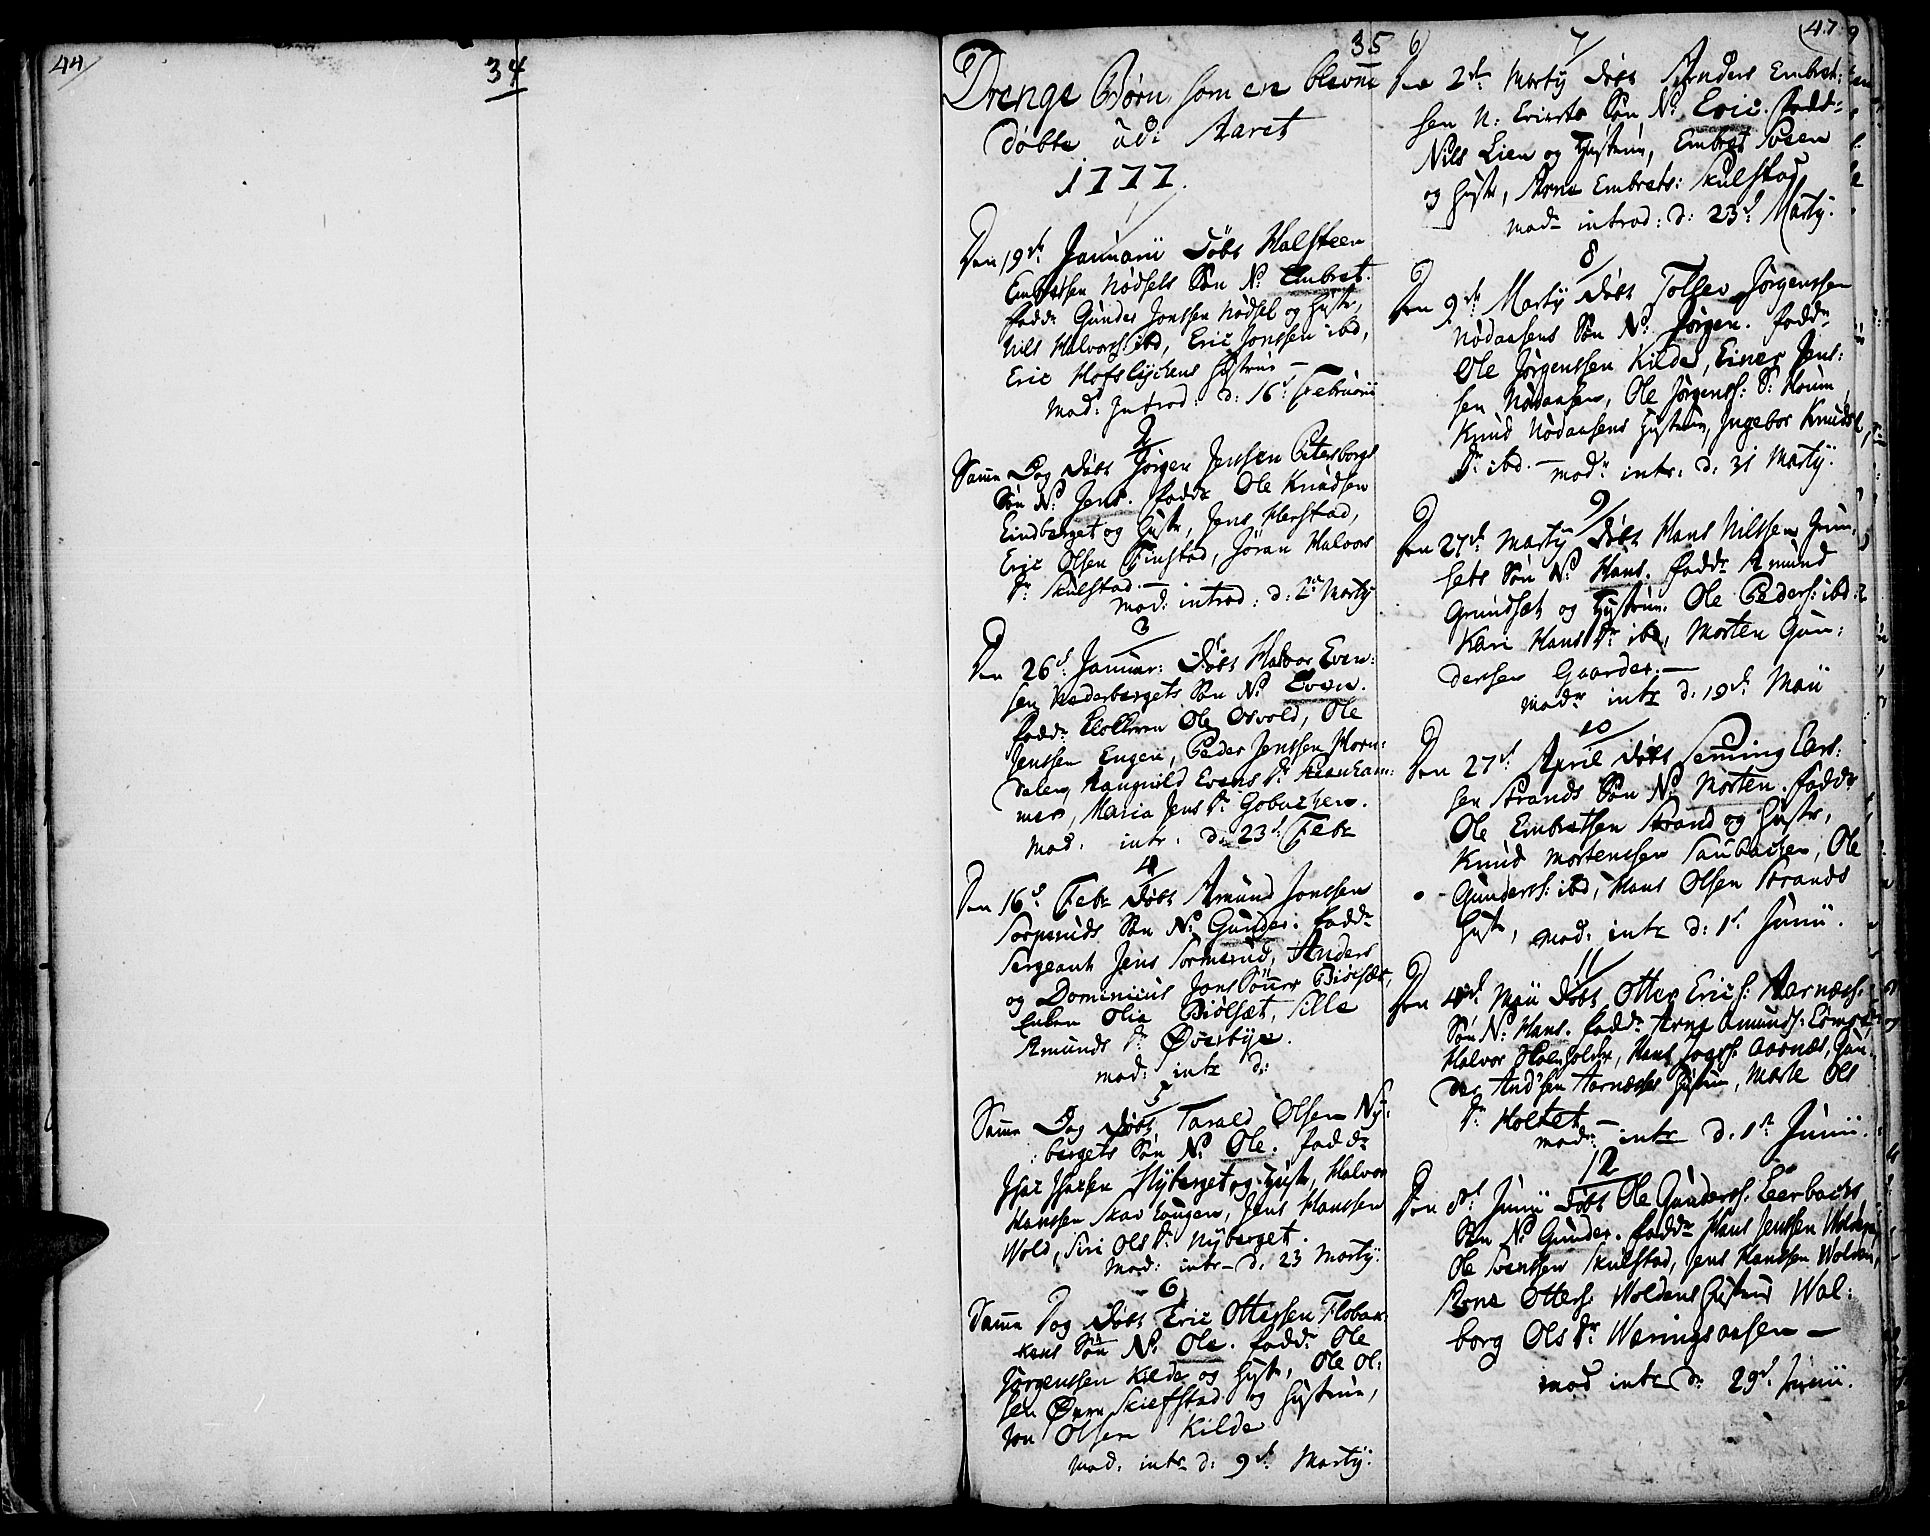 44
34
35
47
Drenge Børn, som ere blevne
døbte udi Aaret
1777.
1
Den 19de Januarii Døbt Halsteen
Embretsen Nødsets Søn N: Embret.
fadd: Gunder Jonssen Nødsel og Hustr,
Nils Halvors: ibd, Eric Jonssen ibd,
Eric Hofslychens Hustrue —
Mod: Introd: d: 16d Februarii
2
Samme Dag Døbt Jørgen Jenssen Petersborgs
Søn N: Jens. fadd: Ole Knudsen
Eindberget og Hustr, Jens Herstad,
Eric Olsen Finstad, Jøran Halvors
Dr Skulstad. —
mod: introd: d: 2d Marty
3
Den 26d Januar: Døbt Halvor Even:
sen Nederbergets Søn N: Even.
fadd: Klokkeren Ole Osvold, Ole
Jenssen Engen, Peder Jenssen Horn:
dalen, Rangnild Evens Dr Stranham:
mer, Maria Jens Dr Gobachen.
Mod: intr: d: 23d Febr
4
Den 16d Febr Døbt Amund Jonssen
Torperuds Søn N: Gunder. fadd:
Sergeant Jens Tormerud, Anders
og Dominicus Jons Sønner Biølset,
Enken Olia Biølset, Sille
Amunds Dr Øverbye.
mod: intr d:
5
Samme Dag Døbt Tarald Olsen Ny:
bergets Søn N: Ole. fadd:
Isac Isacsen Nyberget og Hustr, Halvor
Hanssen Skavhougen, Jens Hanssen
Wold, Siri Ols Dr Nyberget.
Mod: intr d: 23 Marty:
6
Samme Dag Døbt Eric Ottessen Flobak:
kens Søn N: Ole. fadd: Ole
Jørgenssen Kilde og Hustr, Ole Ol:
sen Øvre Skiefstad og Hustrue,
Jon Olsen Kilde
Mod: intr d: 9d Marty:
7
Den 2d Marty Døbt Anders Embret:
sen N: Søn N: Eric. fadd:
Nils Lien og Hustrue, Embret
og Hustr, Arne Embrets: Skulstad,
Mod: introd: d: 23d Marty.
8
Den 9d Marty Døbt Tollev Jørgenssen
Nødaasens Søn N: Jørgen. fadd:
Ole Jørgenssen Kilde, Einer Jens:
sen Nødaasen, Ole Jørgenss: S: Houm
Knud Nødaasens Hustrue, Ingebor Knuds
Dr ibd. — Mod: intr: d: 31 Marty.
9
Den 27d Marty Døbt Hans Nilssen Grun:
sets Søn N: Hans. fadd: Amund
Grundset og Hustrue. Ole Peders: ibd:
Kari Hans Dr ibd, Morten Gun:
dersen Gaarder. —
mod: intr d: 19d Maii
10
Den 27d April Døbt Semming Lars:
sen Strands Søn N: Morten. fadd:
Ole Embretsen Strand og Hustr,
Knud Mortenssen Saubachen, Ole
Gunderss: ibd, Hans Olsen Strands
Hustr, mod: intr d: 1d Junii.
11
Den 4d Maii Døbt Otter Erics: Aarnæs
Søn N: Hans. fadd: Arne Amunds:
Halvor, Hans Aarnæs, Gun:
der Andsen Aarnæsses Hustrue, Marte Ols
Dr Holtet —
mod: intr d: 1d Junii.
12
Den 8d Junii Døbt Ole Gunderss: Leerbachs
Søn N: Gunder. fadd: Hans Jenssen Wolden,
Ole Svenssen Skulstad, Jens Hanssen Wolden,
Arne Otters: Woldens Hustrue Wal:
borg Ols Dr Wæringsaasen —
mod intr d: 29d Junii.